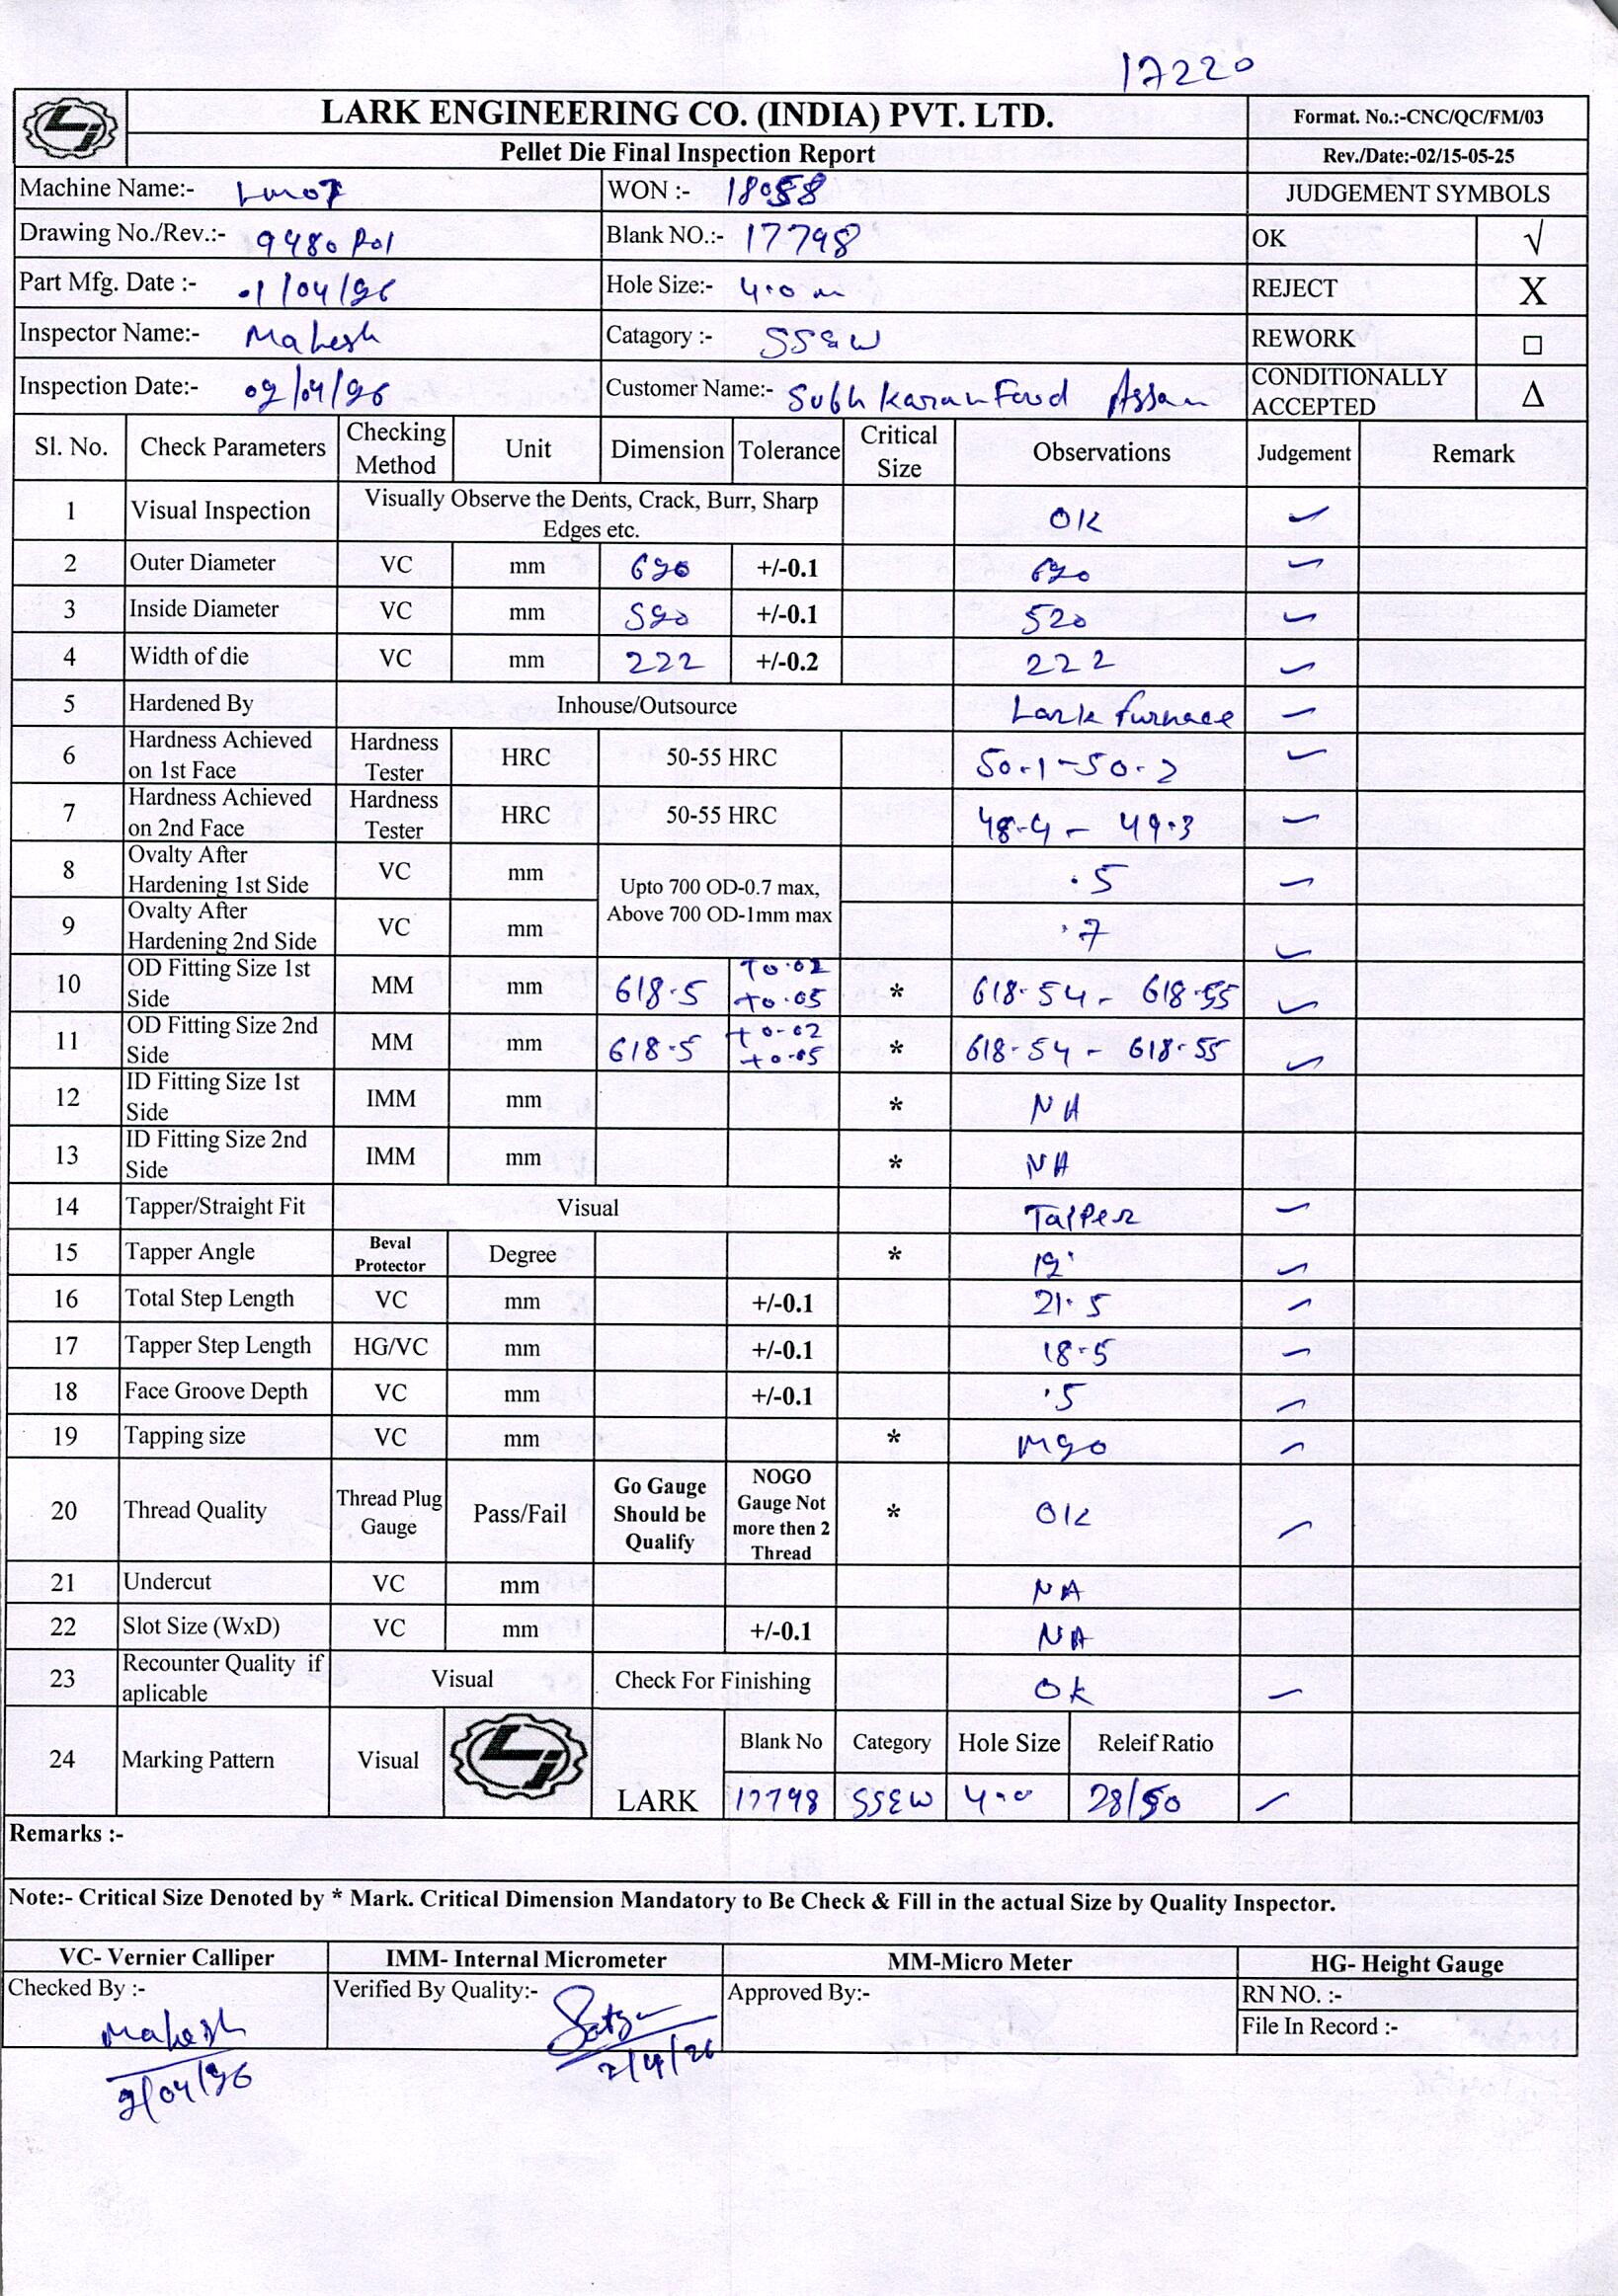 17220
LARK ENGINEERING CO. (INDIA) PVT. LTD.
Format. No.:-CNC/QC/FM/03
Pellet Die Final Inspection Report
Rev./Date:-02/15-05-25
Machine Name:-
WON :- 18058
JUDGEMENT SYMBOLS
Drawing No./Rev.:- 9480 R01
Blank NO.:- 17798
OK √
Part Mfg. Date :- 01/04/26
Hole Size:- 4.0 m
REJECT X
Inspector Name:- Mahesh
Catagory :- SSEW
REWORK □
Inspection Date:- 02/04/26
Customer Name:- Subh Karan Food Assam
CONDITIONALLY ACCEPTED Δ
Sl. No. Check Parameters Checking Method Unit Dimension Tolerance Critical Size Observations Judgement Remark
1 Visual Inspection Visually Observe the Dents, Crack, Burr, Sharp Edges etc. OK ✓
2 Outer Diameter VC mm 620 +/-0.1 620 ✓
3 Inside Diameter VC mm 520 +/-0.1 520 ✓
4 Width of die VC mm 222 +/-0.2 222 ✓
5 Hardened By Inhouse/Outsource Lark furnace ✓
6 Hardness Achieved on 1st Face Hardness Tester HRC 50-55 HRC 50.1-50.2 ✓
7 Hardness Achieved on 2nd Face Hardness Tester HRC 50-55 HRC 48.4 - 49.3 ✓
8 Ovalty After Hardening 1st Side VC mm Upto 700 OD-0.7 max, Above 700 OD-1mm max .5 ✓
9 Ovalty After Hardening 2nd Side VC mm .7 ✓
10 OD Fitting Size 1st Side MM mm 618.5 +0.02 +0.05 * 618.54 - 618.55 ✓
11 OD Fitting Size 2nd Side MM mm 618.5 +0.02 +0.05 * 618.54 - 618.55 ✓
12 ID Fitting Size 1st Side IMM mm * NA
13 ID Fitting Size 2nd Side IMM mm * NA
14 Tapper/Straight Fit Visual Tapper ✓
15 Tapper Angle Beval Protector Degree * 12° ✓
16 Total Step Length VC mm +/-0.1 21.5 ✓
17 Tapper Step Length HG/VC mm +/-0.1 18.5 ✓
18 Face Groove Depth VC mm +/-0.1 .5 ✓
19 Tapping size VC mm * M20 ✓
20 Thread Quality Thread Plug Gauge Pass/Fail Go Gauge Should be Qualify NOGO Gauge Not more then 2 Thread * OK ✓
21 Undercut VC mm NA
22 Slot Size (WxD) VC mm +/-0.1 NA
23 Recounter Quality if aplicable Visual Check For Finishing OK ✓
24 Marking Pattern Visual LARK Blank No Category Hole Size Releif Ratio
17798 SSEW 4.0 28/50 ✓
Remarks :-
Note:- Critical Size Denoted by * Mark. Critical Dimension Mandatory to Be Check & Fill in the actual Size by Quality Inspector.
VC- Vernier Calliper IMM- Internal Micrometer MM-Micro Meter HG- Height Gauge
Checked By :- Mahesh 2/04/26
Verified By Quality:- 2/4/26
Approved By:-
RN NO. :-
File In Record :-